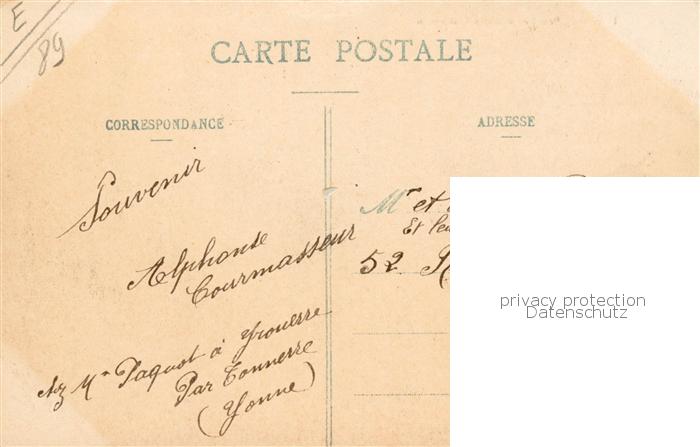 E
89
CARTE POSTALE
CORRESPONDANCE
Souvenir
Alphonse
Courmasseur
chez Mr Paquot à Yrouerre
Par Tonnerre
(Yonne)
ADRESSE
Mr et
Et
52
privacy protection
Datenschutz